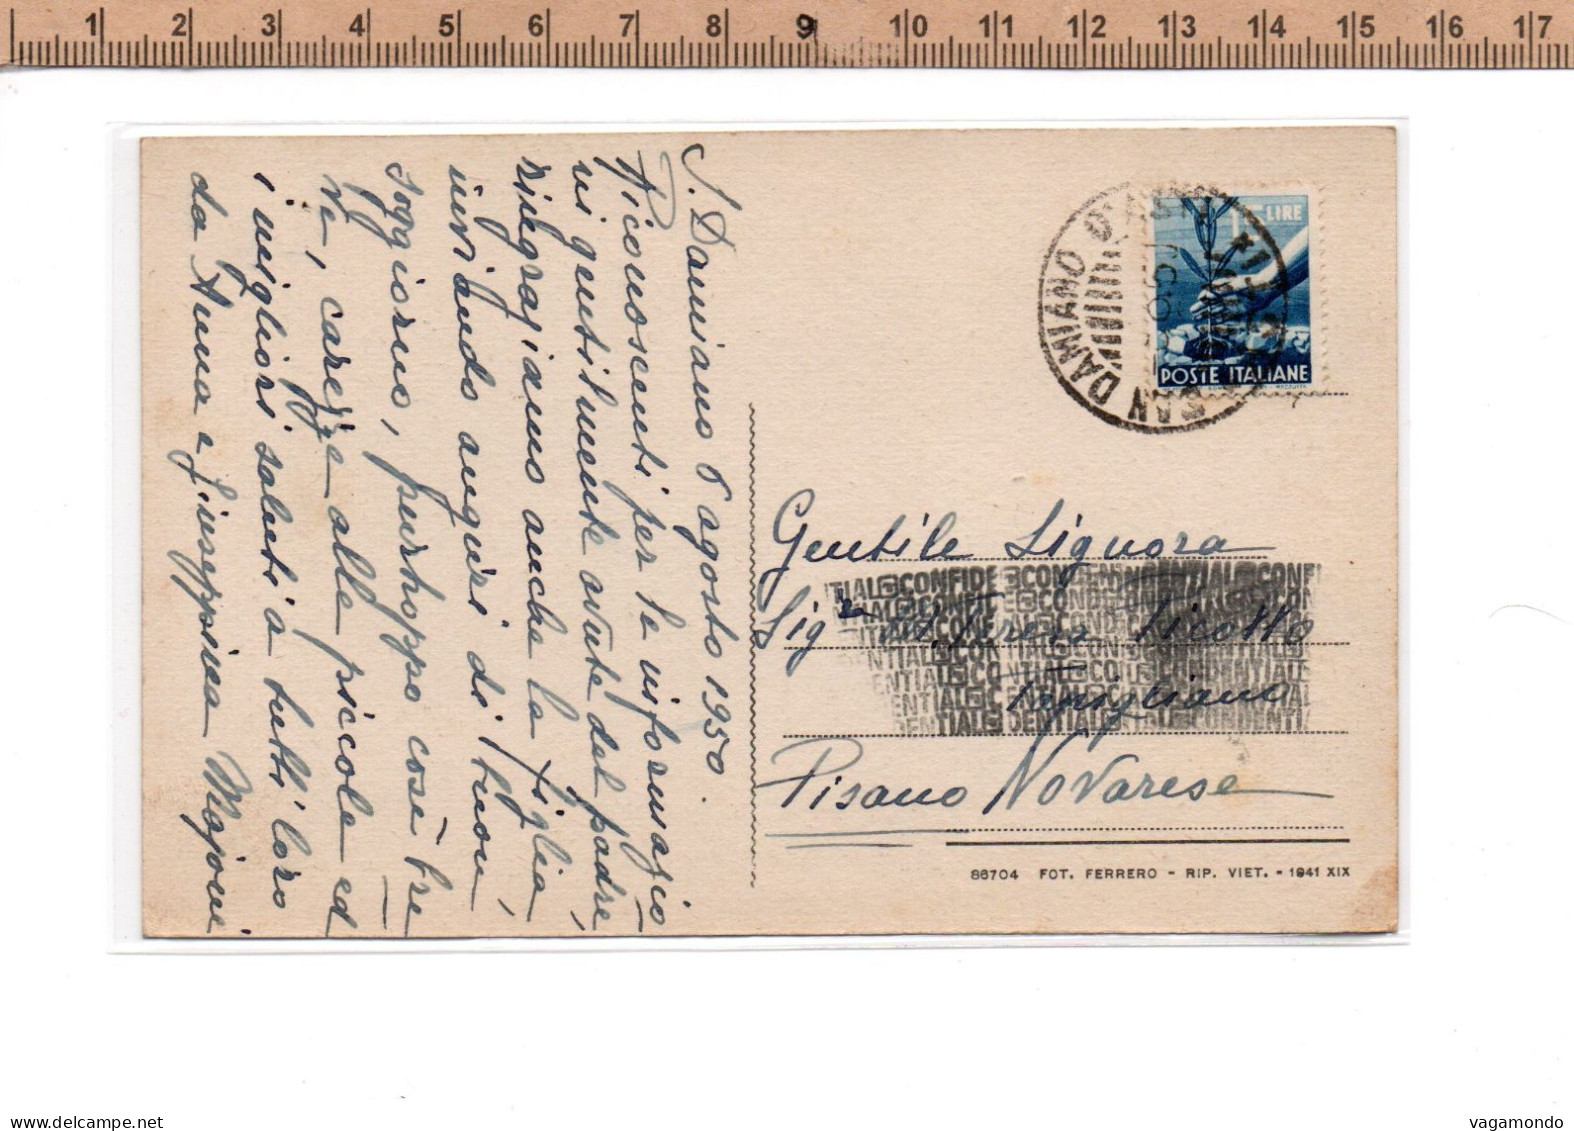 1 2 3 4 5 6 7 8 9 10 11 12 13 14 15 16 17
S. Damiano 6 agosto 1950.
Riconoscenti per le informazio
ni gentilmente avute dal padre,
ringraziamo anche la figlia,
inviando auguri di buon
soggiorno, purtroppo così bre
ve, carezze alla piccola ed
i migliori saluti a tutti loro
da Anna e Giuseppina Majoni
SAN DAMIANO D'ASTI
15 LIRE
POSTE ITALIANE
Gentile Signora
Sig ra Teresa
Pisano Novarese
CONFIDENTIAL
86704 FOT. FERRERO - RIP. VIET. - 1941 XIX
vagamondo